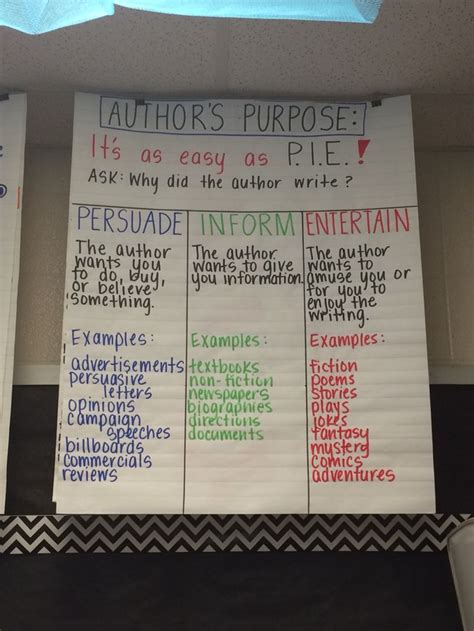 AUTHOR'S PURPOSE:
It's as easy as P.I.E.!
ASK: Why did the author write?
PERSUADE
The author
wants you
to do, buy,
or believe
something.
Examples:
advertisements
persuasive
letters
opinions
campaign
speeches
billboards
commercials
reviews
INFORM
The author
wants to give
you information.
Examples:
textbooks
non-fiction
newspapers
biographies
directions
documents
ENTERTAIN
The author
wants to
amuse you or
for you to
enjoy the
writing.
Examples:
fiction
poems
stories
plays
jokes
fantasy
mystery
comics
adventures